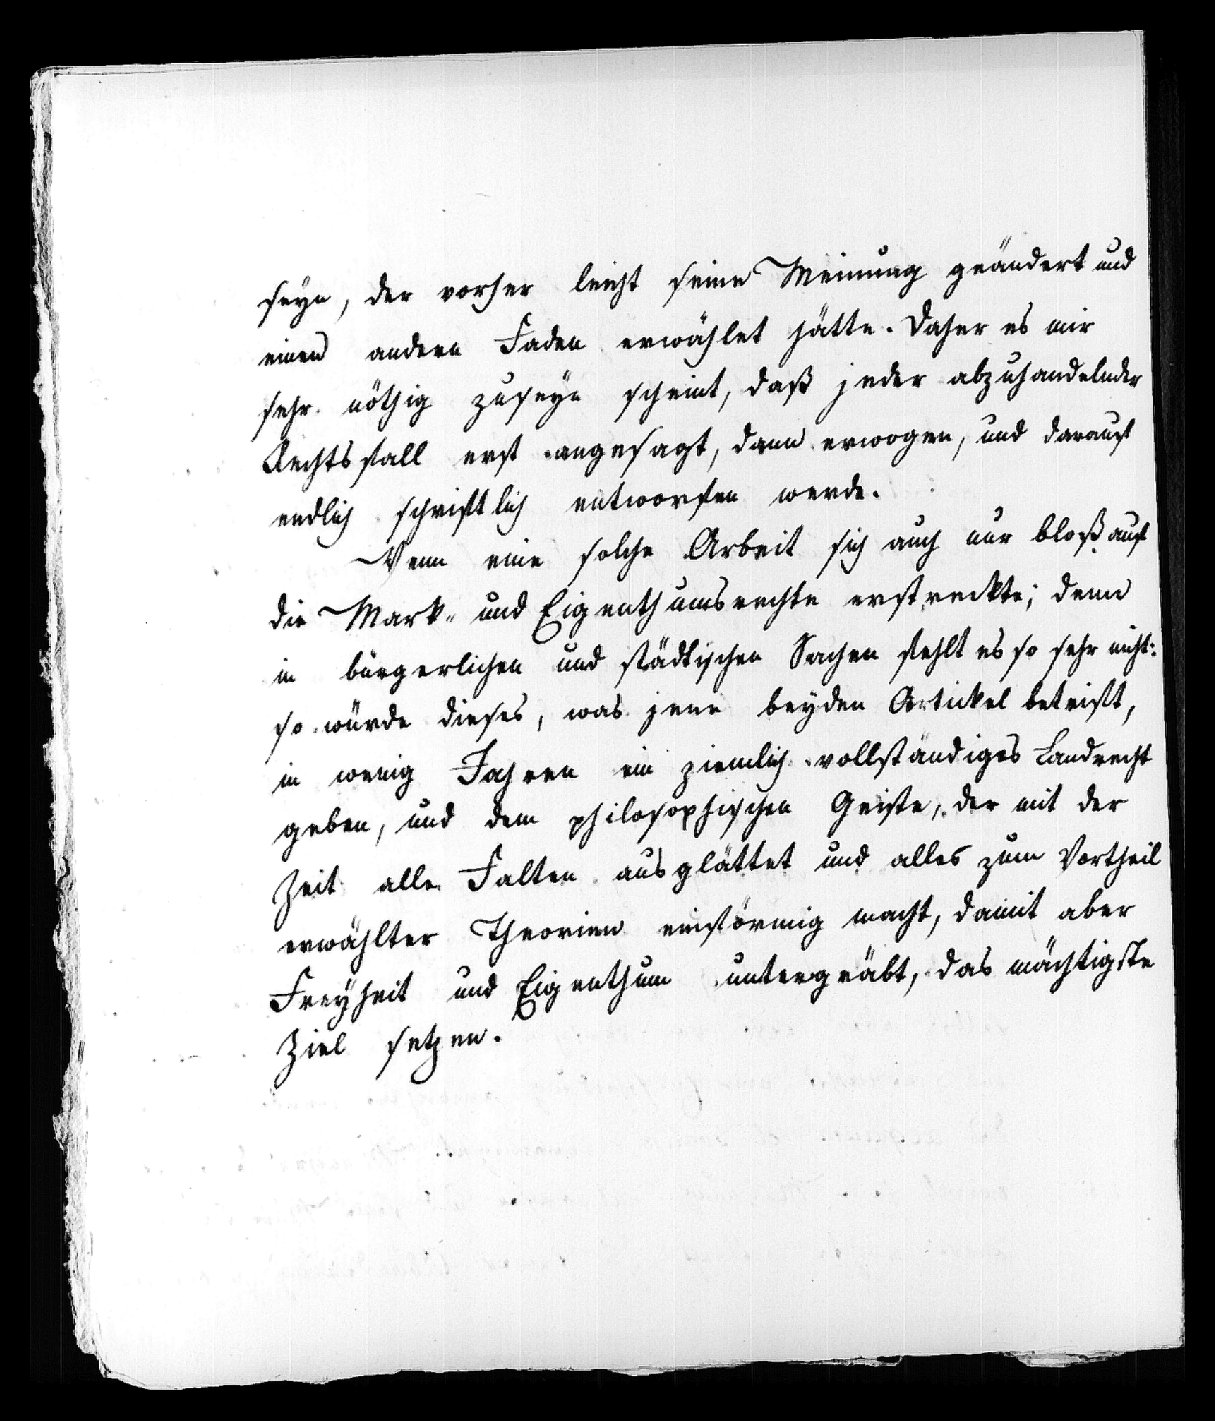 seyn, der vorher leicht seine Meinung geändert und
einen andern Faden erwählet hätte. Daher es mir
sehr nöthig zuseyn scheint, daß jeder abzuhandelnder
Rechtsfall erst angesagt, dann erwogen, und darauf
endlich schriftlich entworfen werde.
Wenn eine solche Arbeit sich auch nur bloß auf
die Mark- und Eigenthumsrechte erstreckte; denn
in bürgerlichen und städtischen Sachen fehlt es so sehr nicht:
so würde dieses, was jene beyden Artickel betrift,
in wenig Jahren ein ziemlich vollständiges Landrecht
geben, und dem philosophischen Geiste, der mit der
Zeit alle Falten ausglättet und alles zum Vortheil
erwählter Theorien einförmig macht, damit aber
Freyheit und Eigenthum untergräbt, das mächtigste
Ziel setzen.